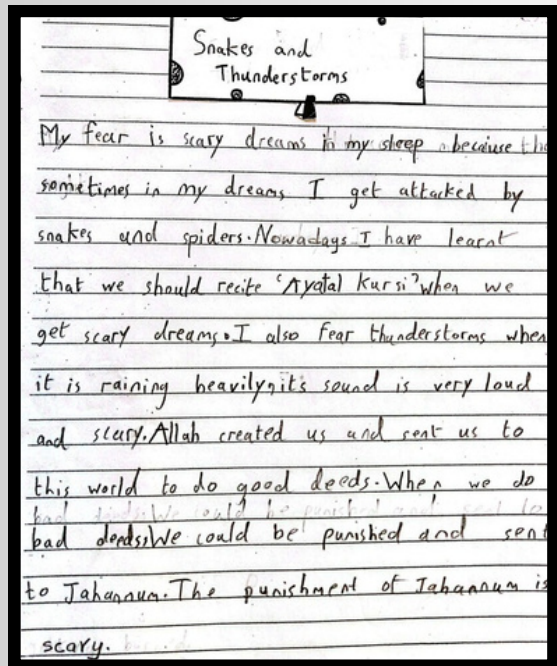 Snakes and
Thunderstorms
My fear is scary dreams in my sleep because
sometimes in my dreams I get attacked by
snakes and spiders. Nowadays I have learnt
that we should recite 'Ayatal Kursi' when we
get scary dreams. I also fear thunderstorms when
it is raining heavily, it's sound is very loud
and scary. Allah created us and sent us to
this world to do good deeds. When we do
bad deeds, We could be punished and sent
to Jahannum. The punishment of Jahannum is
scary.